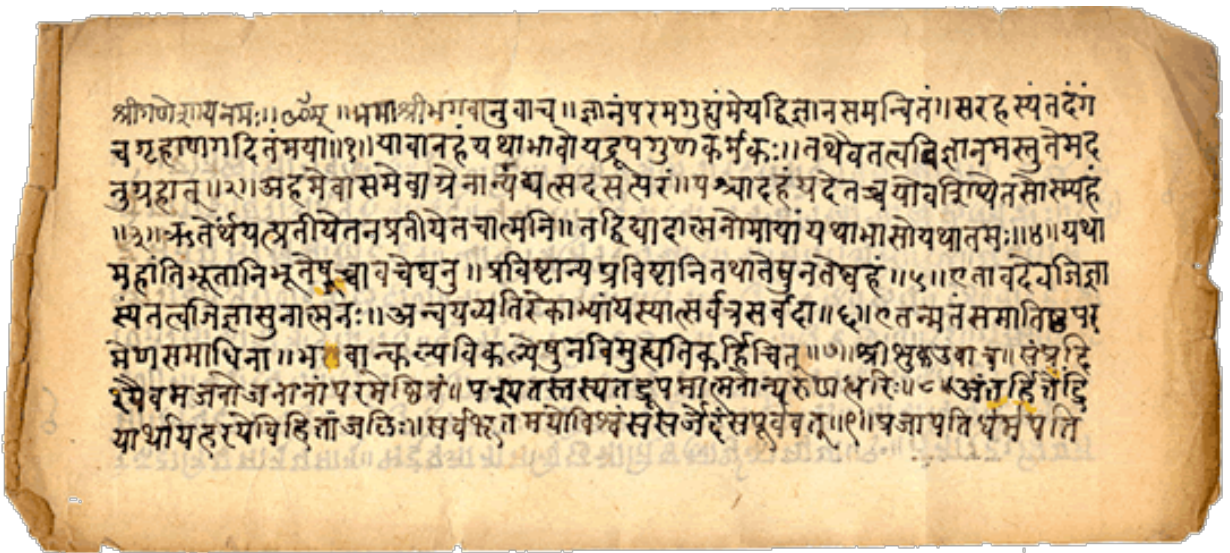 श्रीगणेशायनमः।।ॐ ॥ श्रीभगवानुवाच॥ज्ञानंपरमगुह्यंमेयद्विज्ञानसमन्वितं॥सरहस्यंतदंगं
चगृहाणगदितंमया॥१॥यावानहंयथाभावोयद्रूपगुणकर्मकः॥तथैवतत्वविज्ञानमस्तुतेमद
नुग्रहात्॥२॥अहमेवासमेवाग्रेनान्यद्यत्सदसत्परं॥पश्चादहंयदेतच्चयोवशिष्येतसोस्म्यहं
॥३॥ऋतेर्थंयत्प्रतीयेतनप्रतीयेतचात्मनि॥तद्विद्यादात्मनोमायांयथाभासोयथातमः॥४॥यथा
महांतिभूतानिभूतेषूच्चावचेष्वनु॥प्रविष्टान्यप्रविष्टानितथातेषुनतेष्वहं॥५॥एतावदेवजिज्ञा
स्यंतत्वजिज्ञासुनात्मनः॥अन्वयव्यतिरेकाभ्यांयस्यात्सर्वत्रसर्वदा॥६॥एतन्मतंसमातिष्ठपर
मेणसमाधिना॥भवान्कल्पविकल्पेषुनविमुह्यतिकर्हिचित्॥७॥श्रीशुकउवाच॥संप्रदि
श्यैवमजनोजनानांपरमेष्ठिनं॥पश्यतस्तस्यतद्रूपमात्मनोन्यरुणद्धरिः॥८॥अंतर्हितेंद्रि
यार्थायहरयेविहितांजलिः॥सर्वभूतमयोविश्वंससर्जेदंसपूर्ववत्॥९॥प्रजापतिर्धर्मपति